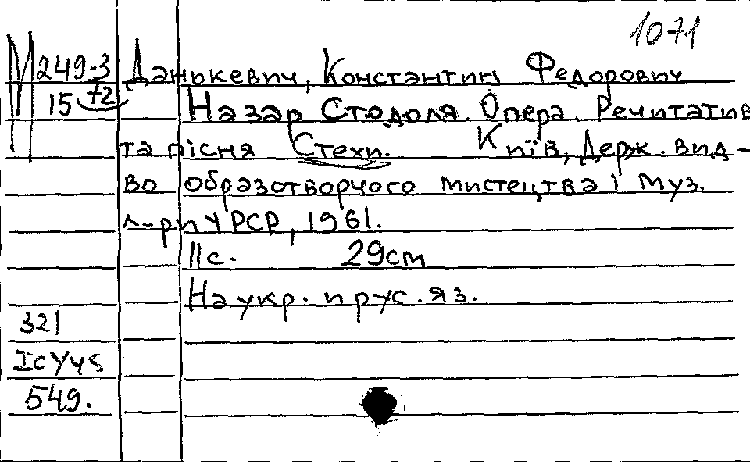 1071
М 249-3 Данькевич, Константин Федорович
15 72 Назар Стодоля. Опера. Речитатив
та пісня Стехи. Київ, Держ. вид-
во образотворчого мистецтва і муз.
л-ри УРСР, 1961.
11с. 29см
На укр. и рус. яз.
321
549.